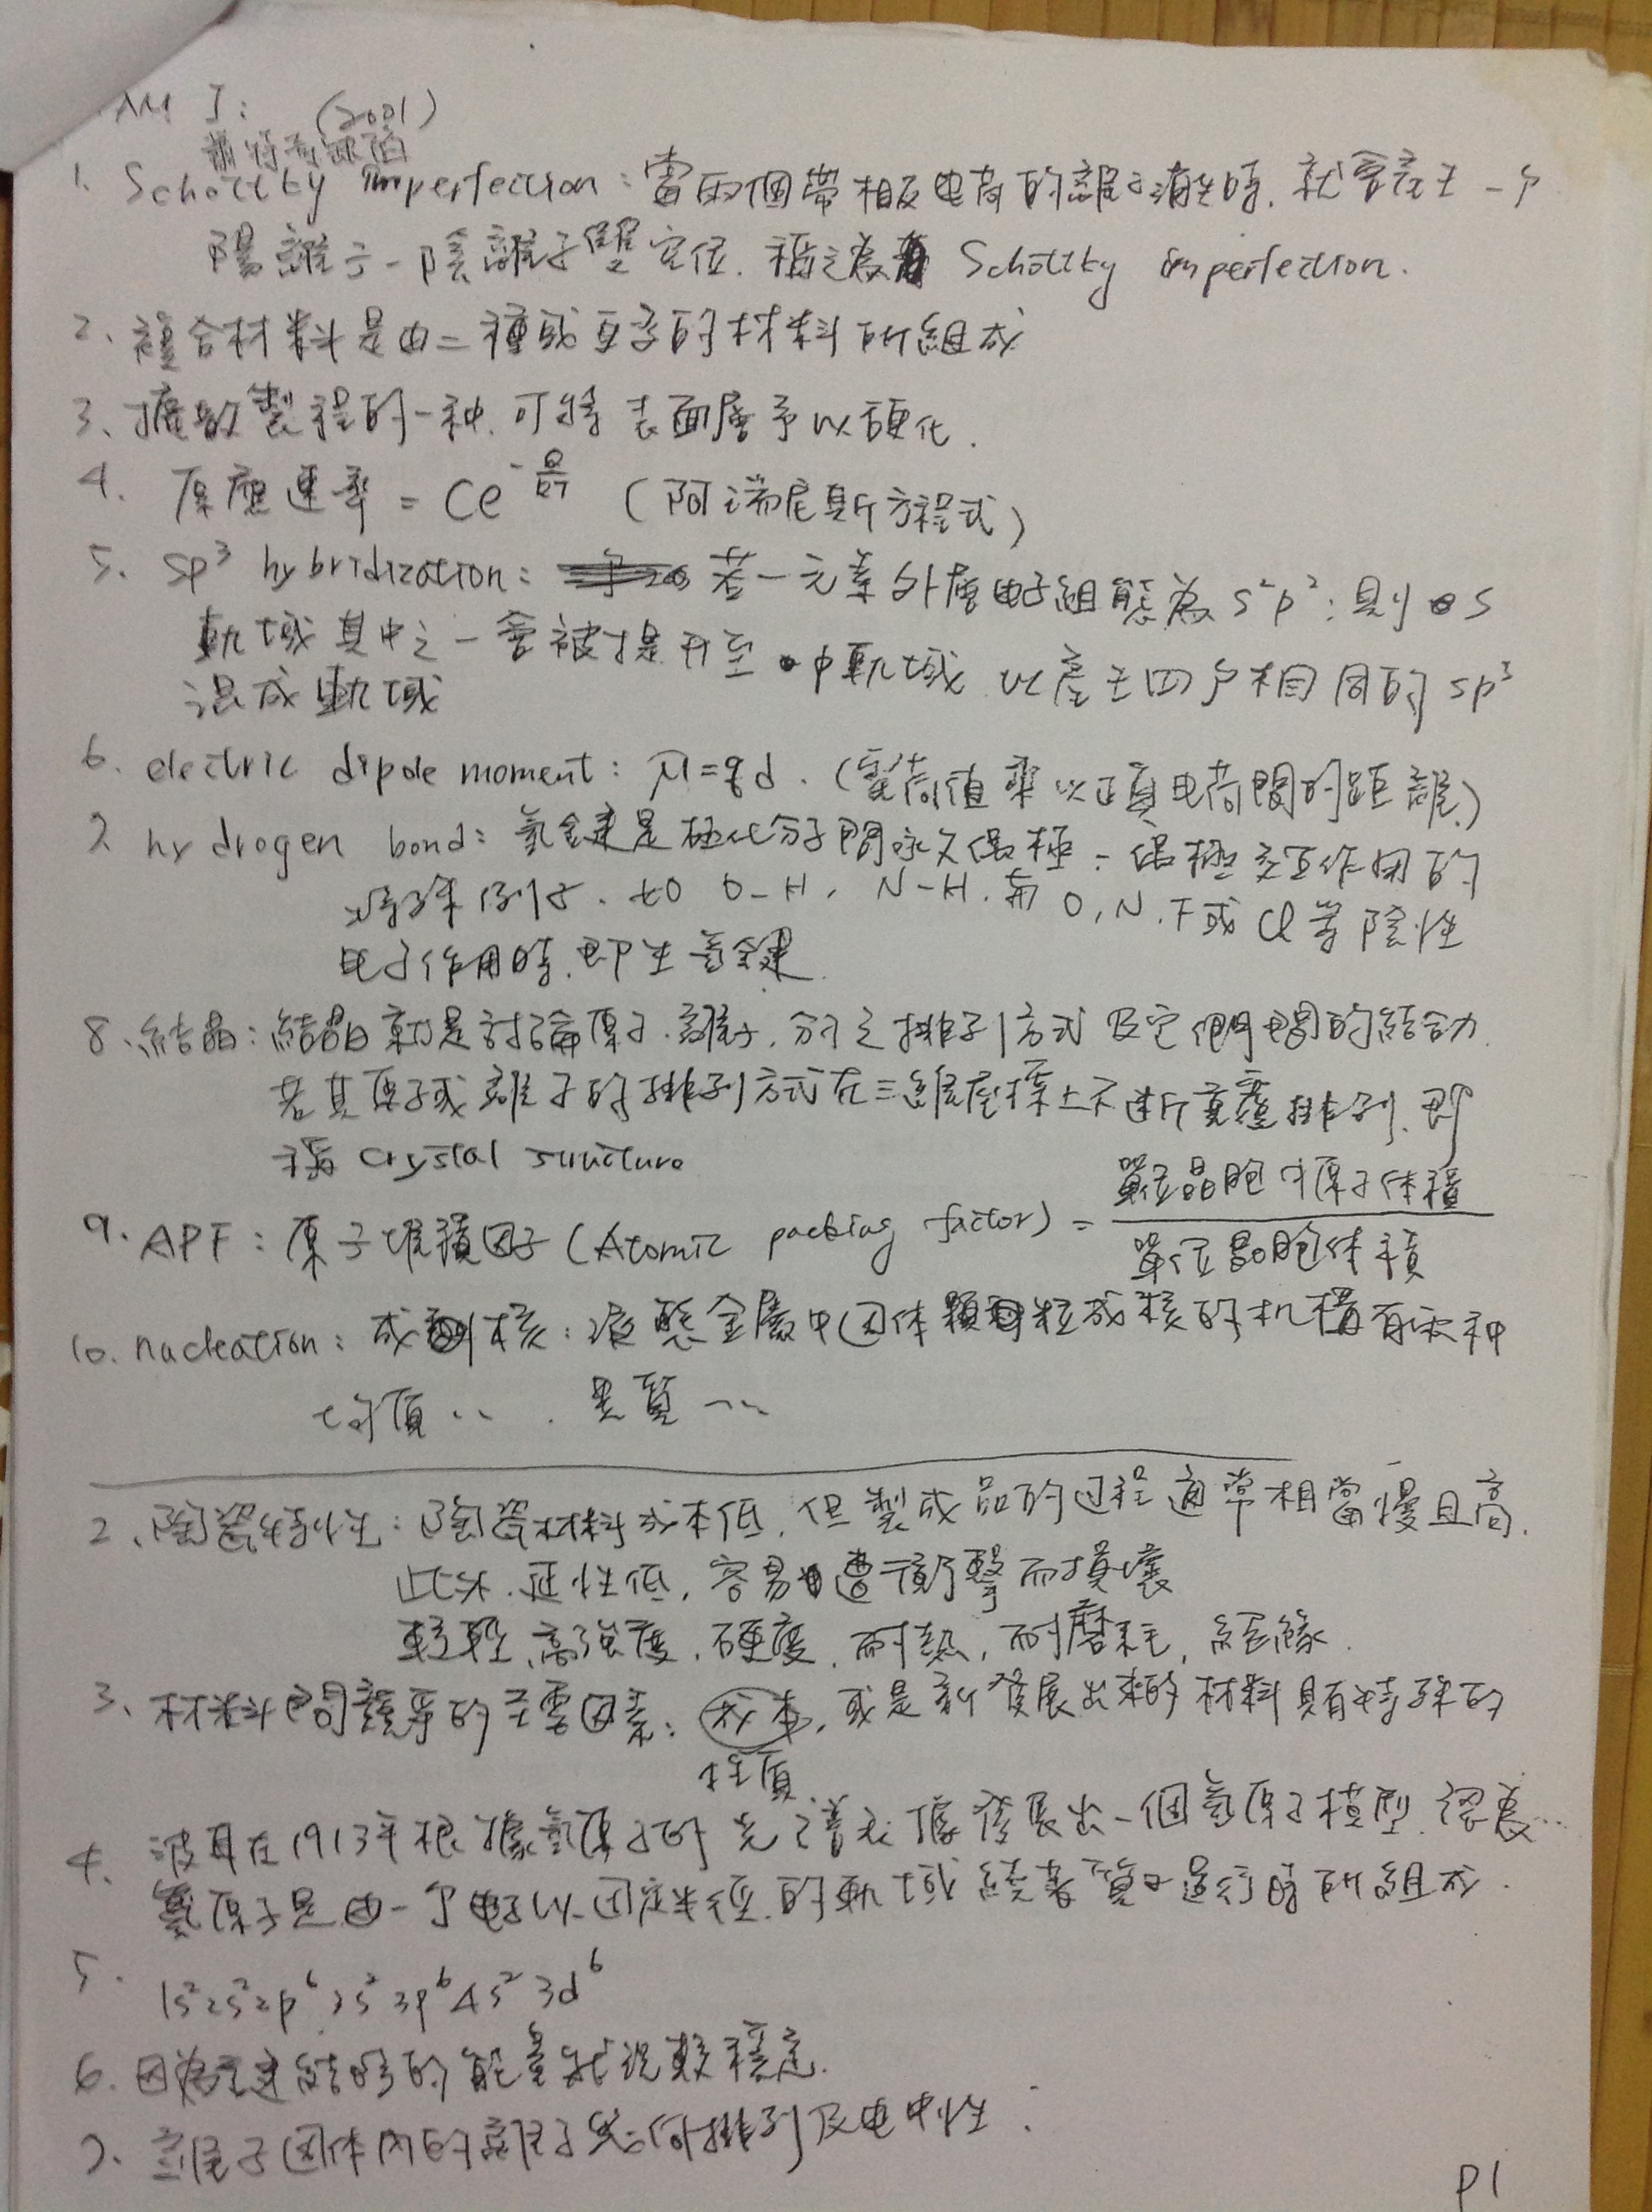 AM I: (2001)
蕭特基缺陷
1. Schottky imperfection: 當兩個帶相反电荷的離子消失時, 就會產生一个
陽離子-陰離子雙空位, 稱之為 Schottky imperfection.
2、複合材料是由二種或更多的材料所組成
3、擴散製程的一种, 可將表面層予以硬化.
4. 反應速率 = Ce^-Q/RT (阿瑞尼斯方程式)
5. sp³ hybridization: 若一元素外層電子組態為 s²p²; 則 s
軌域其中之一會被提升至 p軌域 以產生四个相同的 sp³
混成軌域
6. electric dipole moment: μ=qd. (電荷值乘以正負电荷間的距離)
7 hydrogen bond: 氫鍵是極化分子間永久偶極-偶極交互作用的
特殊例子. 如 O-H, N-H. 與 O, N. F或 Cl等陰性
电子作用時, 即生氫鍵.
8、結晶: 結晶就是討論原子. 離子. 分子之排列方式及它們間的結合力.
若其原子或離子的排列方式在三維座標上不斷重覆排列, 即
稱 crystal structure
9. APF: 原子堆積因子 (Atomic packing factor) = 單位晶胞中原子体積 / 單位晶胞体積
10. nucleation: 成核: 液態金屬中固体顆粒成核的机構有兩种
均質.. . 異質...
2、陶瓷特性: 陶瓷材料成本低, 但製成品的过程通常相當慢且高.
此外, 延性低, 容易遭衝擊而損壞
輕, 高強度, 硬度, 耐熱, 耐磨耗, 絕緣.
3、材料間競爭的主要因素: 成本, 或是新發展出來的材料具有特殊的
性質.
4. 波耳在1913年根據氫原子的光譜數據發展出一個氫原子模型, 認為...
氫原子是由一个电子以固定半徑的軌域繞著質子運行時所組成.
5. 1s²2s²2p⁶3s²3p⁶4s²3d⁶
6. 因為鍵結時的能量狀況較穩定.
7. 離子固体內的離子幾何排列及电中性.
P1